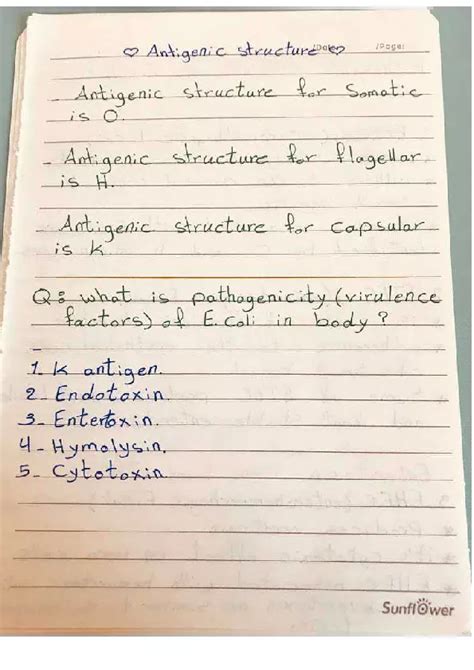 ♡ Antigenic structure ♡
Date
/Page:
- Antigenic structure for Somatic
is O.
- Antigenic structure for flagellar
is H.
- Antigenic structure for capsular
is K
Q: what is pathogenicity (virulence
factors) of E. coli in body ?
1. K antigen.
2- Endotoxin.
3- Entertoxin.
4- Hymolysin.
5- Cytotoxin
Sunflower